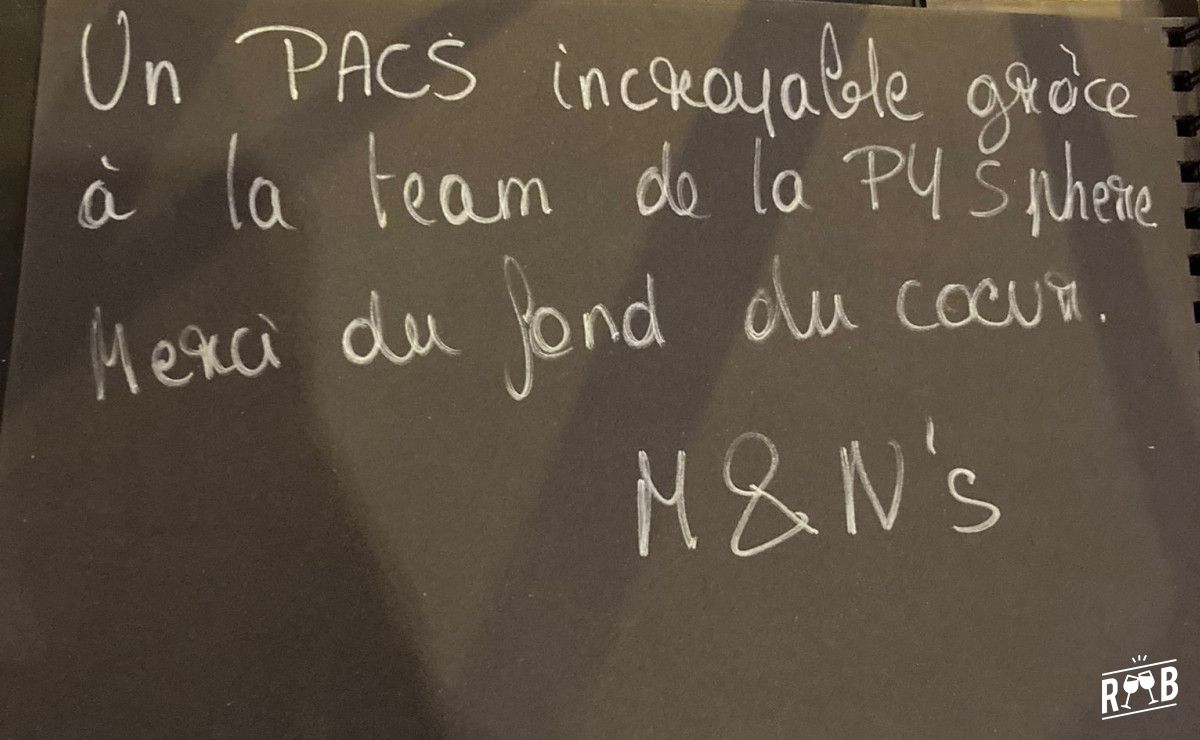 Un PACS incroyable grâce
à la team de la PYSphere
Merci du fond du coeur.
M & N's
R B